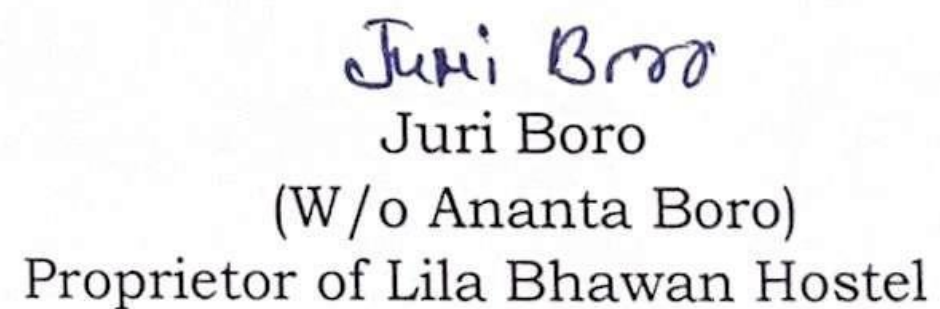 Juri Boro
Juri Boro
(W/o Ananta Boro)
Proprietor of Lila Bhawan Hostel